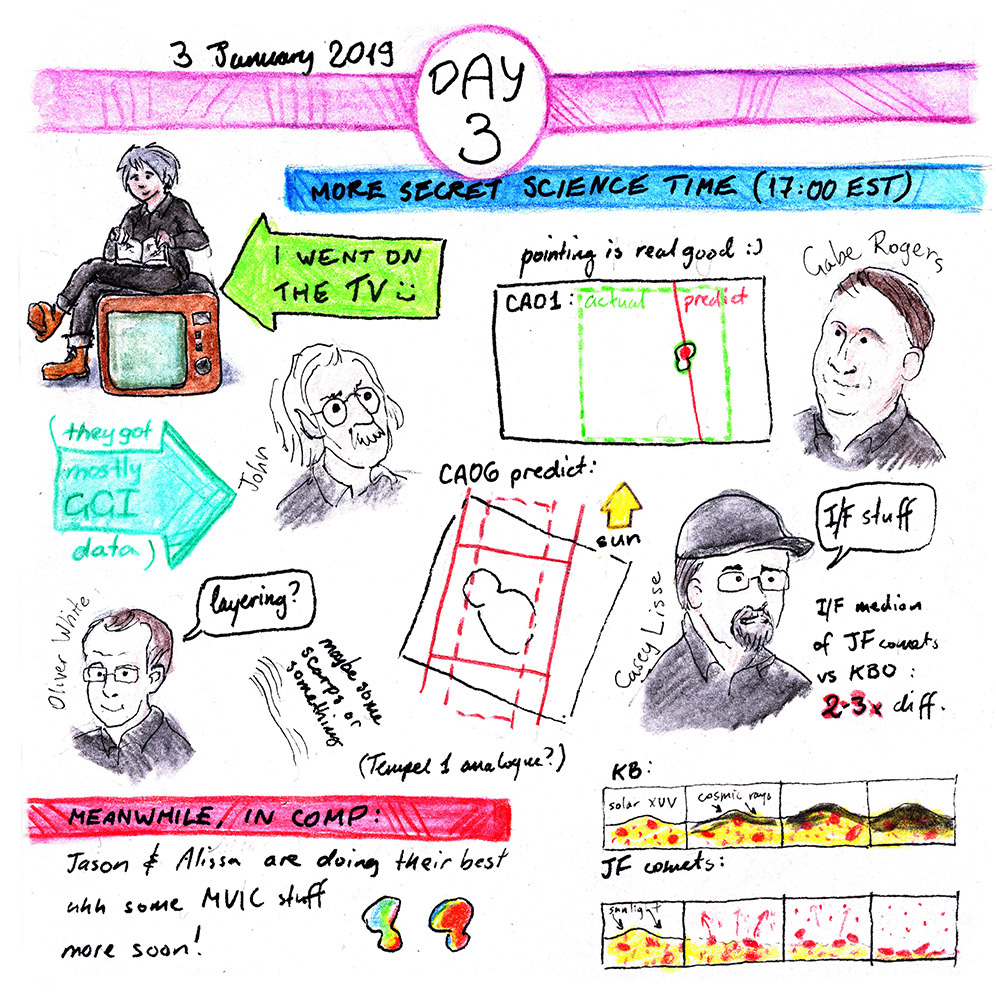 3 January 2019
DAY
3
MORE SECRET SCIENCE TIME (17:00 EST)
I WENT ON
THE TV
pointing is real good :)
CA01: actual predict
Gabe Rogers
(they got
mostly
GGI
data)
John
CA06 predict:
sun
I/F stuff
Casey Lisse
I/F median
of JF comets
vs KBO:
2-3x diff.
Oliver White
layering?
maybe some
scarps or
something
(Tempel 1 analogue?)
MEANWHILE, IN COMP:
Jason & Alissa are doing their best
uhh some MVIC stuff
more soon!
KB:
solar XUV
cosmic rays
JF comets:
sunlight